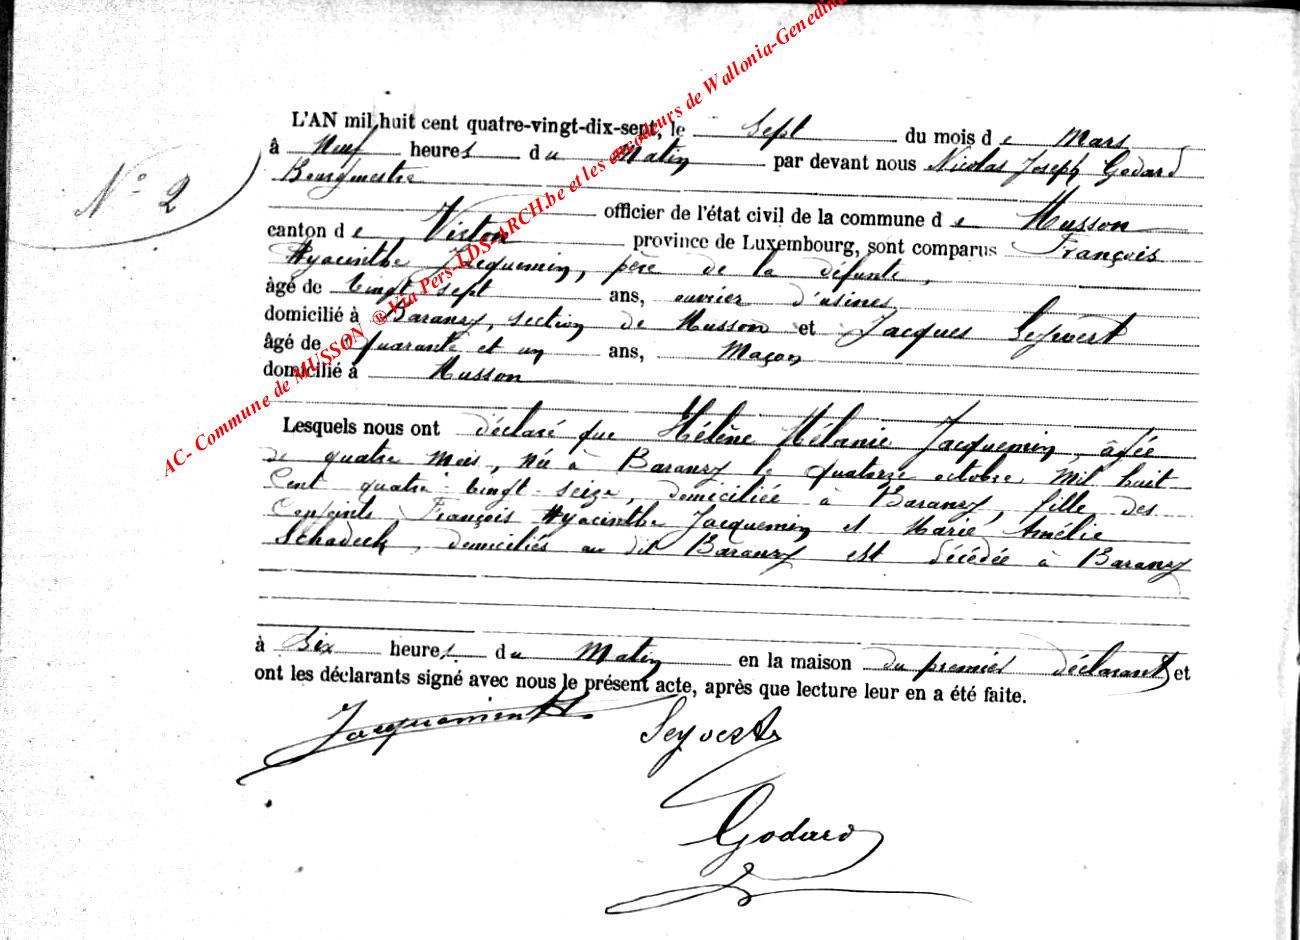 L'AN mil huit cent quatre-vingt-dix-sept, le Sept du mois de Mars
à Neuf heures du Matin par devant nous Nicolas Joseph Godard
Bourgmestre
officier de l'état civil de la commune de Musson
canton de Virton province de Luxembourg, sont comparus François
Hyacinthe Jacquemin, père de la défunte,
âgé de Vingt sept ans, ouvrier d'usines
domicilié à Baranzy, section de Musson et Jacques Seyvert
âgé de Quarante et un ans, Maçon
domicilié à Musson
Lesquels nous ont déclaré que Hélène Mélanie Jacquemin, âgée
de quatre mois, née à Baranzy le quatorze octobre mil huit
Cent quatre vingt seize, domiciliée à Baranzy, fille des
Conjoints François Hyacinthe Jacquemin et Marie Amélie
Schadeck, domiciliés au dit Baranzy est décédée à Baranzy
à Six heures du Matin en la maison du premier déclarant et
ont les déclarants signé avec nous le présent acte, après que lecture leur en a été faite.
N° 2
Jacquemin H.
Seyvert
Godard
AC- Commune de MUSSON ® Via Pers-LDS-ARCH.be et les encodeurs de Wallonia-Genedina